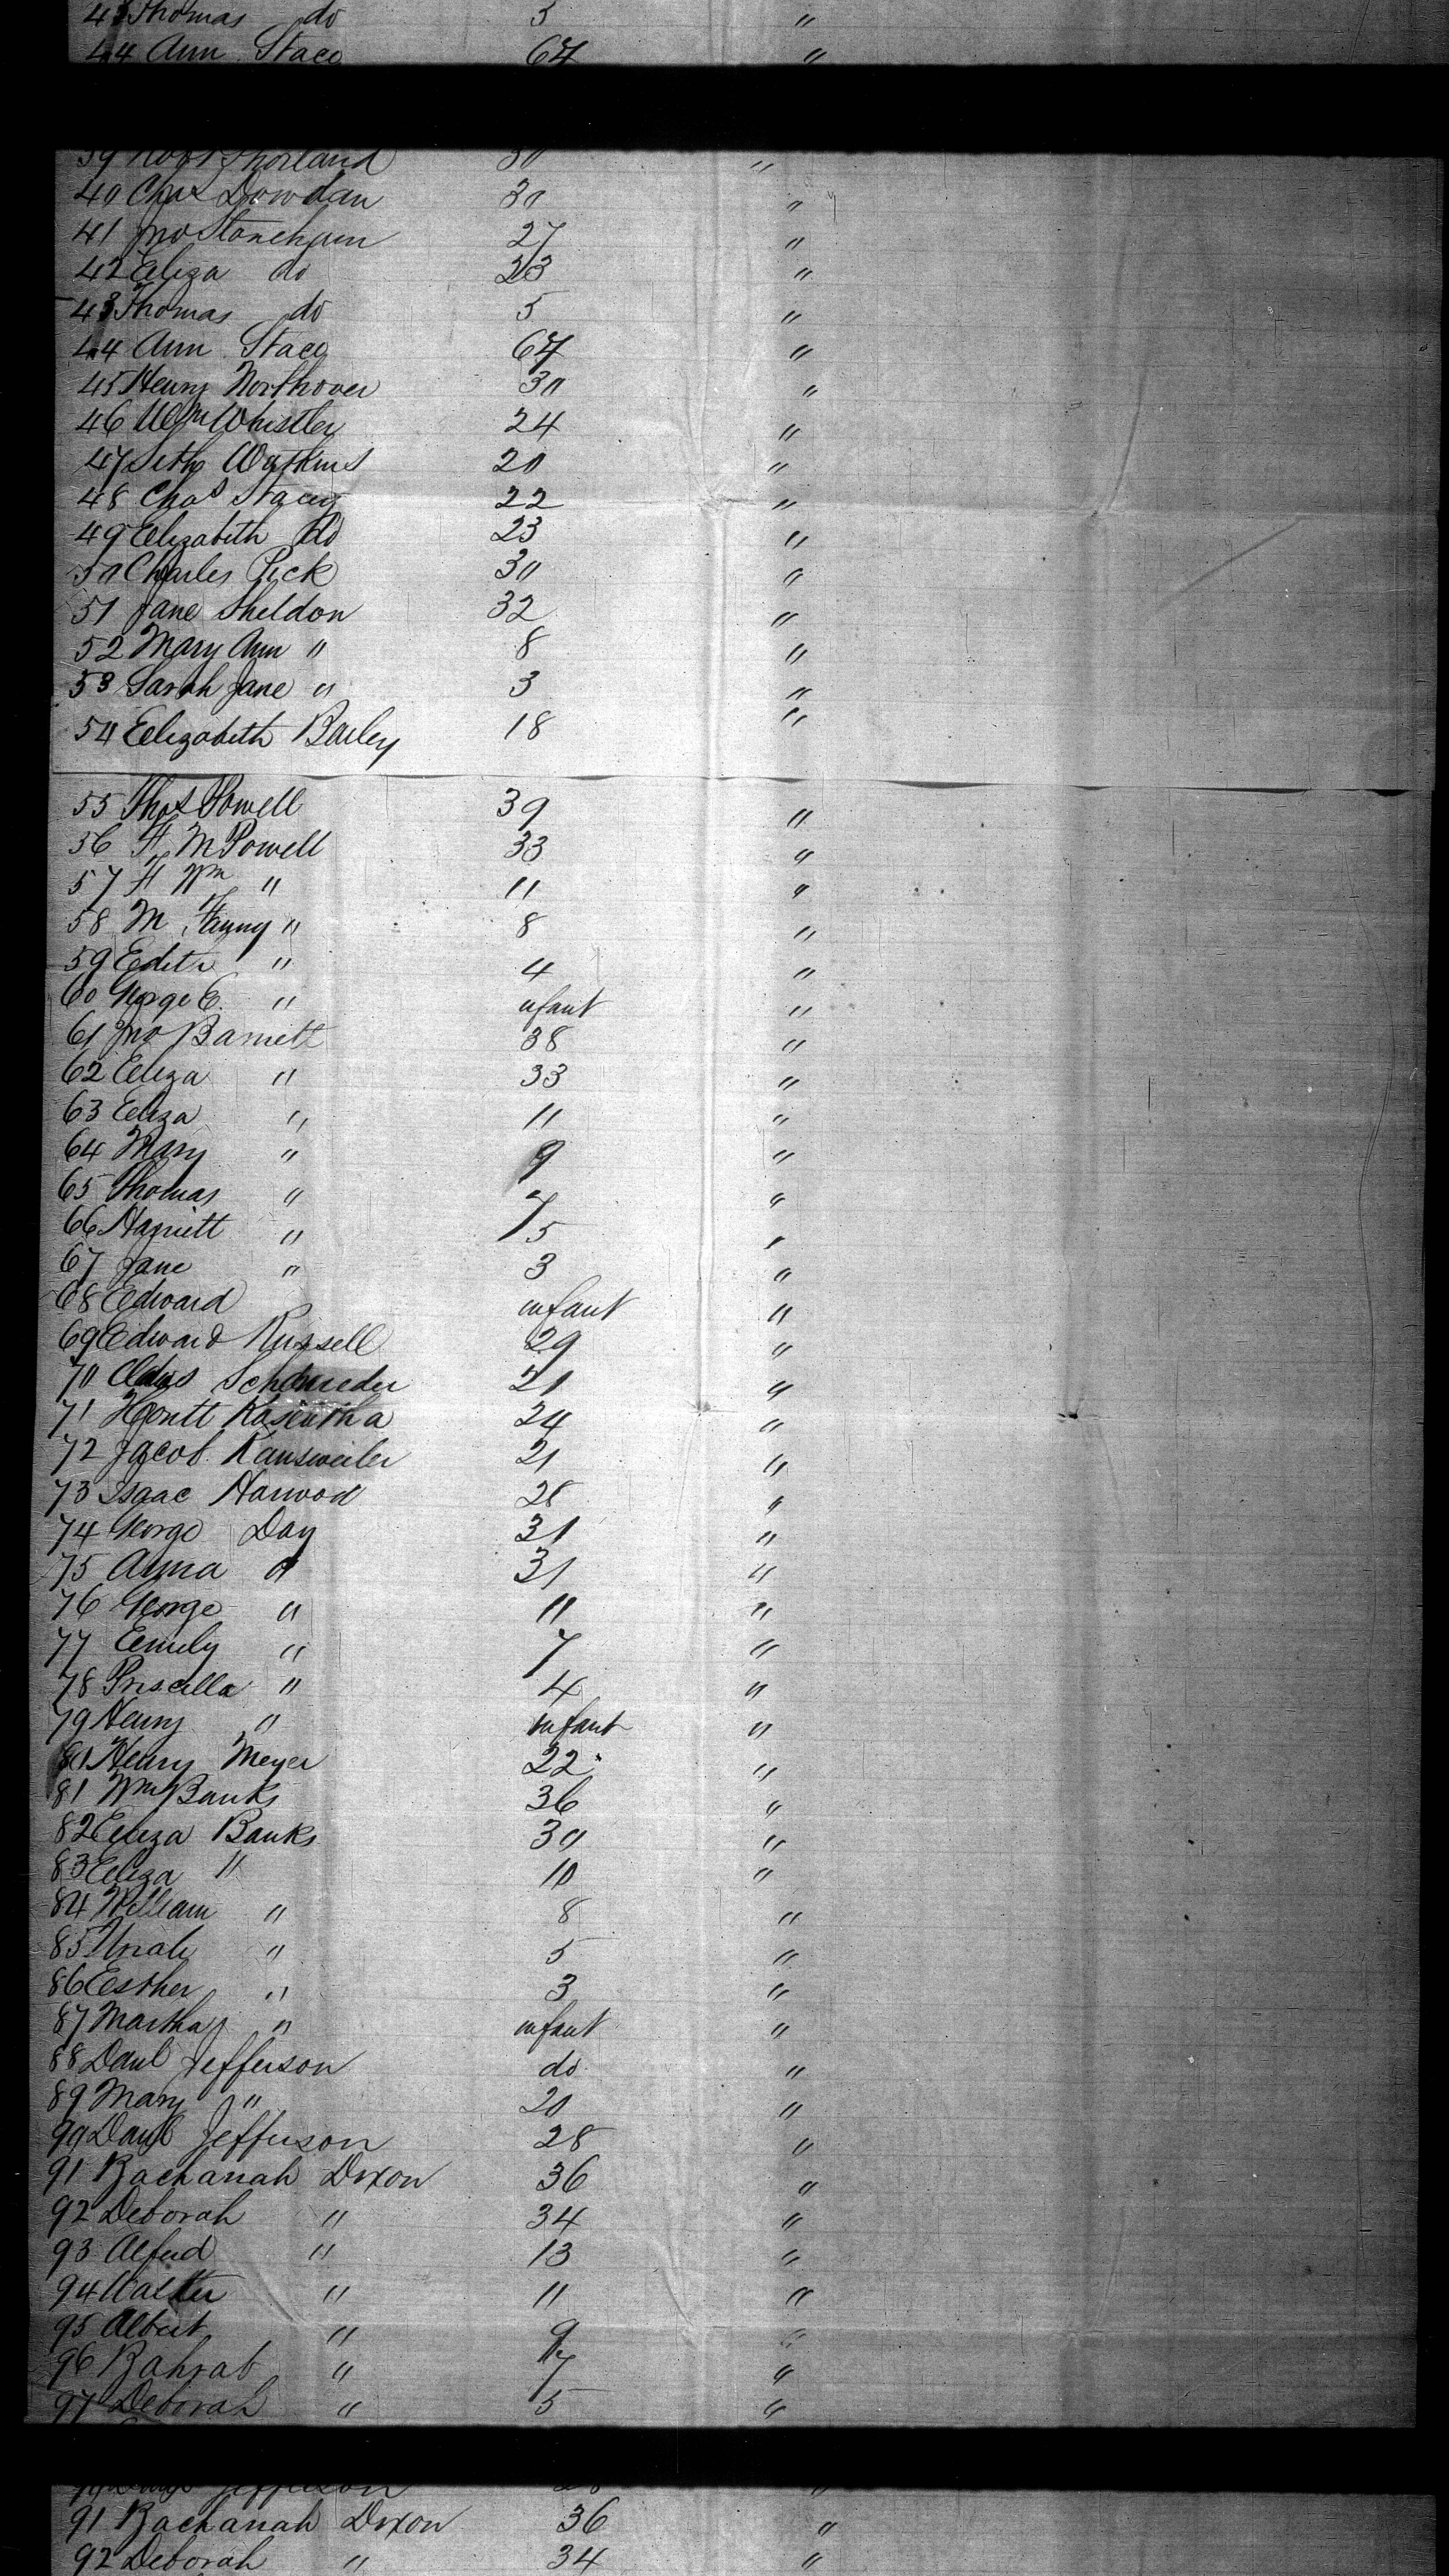 43 Thomas do 5 "
44 Ann Stace 64 "
39 Robt Shorland 30 "
40 Chas Dowdan 30 "
41 Jno Stoneham 27 "
42 Eliza do 23 "
43 Thomas do 5 "
44 Ann Stace 64 "
45 Henry Northover 30 "
46 Wm Whistler 24 "
47 Seth Watkins 20 "
48 Chas Stacey 22 "
49 Elizabeth do 23 "
50 Charles Pick 30 "
51 Jane Sheldon 32 "
52 Mary Ann " 8 "
53 Sarah Jane " 3 "
54 Elizabeth Bailey 18 "
55 Thos Powell 39 "
56 H M Powell 33 "
57 H Wm " 11 "
58 M Fanny " 8 "
59 Edith " 4 "
60 George E. " infant "
61 Jno Barnett 38 "
62 Eliza " 33 "
63 Eliza " 11 "
64 Mary " 9 "
65 Thomas " 7 "
66 Harriett " 5 "
67 Jane " 3 "
68 Edward infant "
69 Edward Russell 29 "
70 Schneider 21 "
71 24 "
72 Jacob Kansweiler 21 "
73 Isaac Harwood 28 "
74 George Day 31 "
75 Anna " 31 "
76 George " 11 "
77 Emily " 7 "
78 Priscilla " 4 "
79 Henry " infant "
80 Henry Meyer 22 "
81 Wm Banks 36 "
82 Eliza Banks 30 "
83 Eliza " 10 "
84 William " 8 "
85 Uriah " 5 "
86 Esther " 3 "
87 Martha " infant "
88 Danl Jefferson do "
89 Mary " 20 "
90 Danl Jefferson 28 "
91 Zachariah Dixon 36 "
92 Deborah " 34 "
93 Alfred " 13 "
94 Walter " 11 "
95 Albert " 9 "
96 " 7 "
97 Deborah " 5 "
90 Danl Jefferson 28 "
91 Zachariah Dixon 36 "
92 Deborah " 34 "